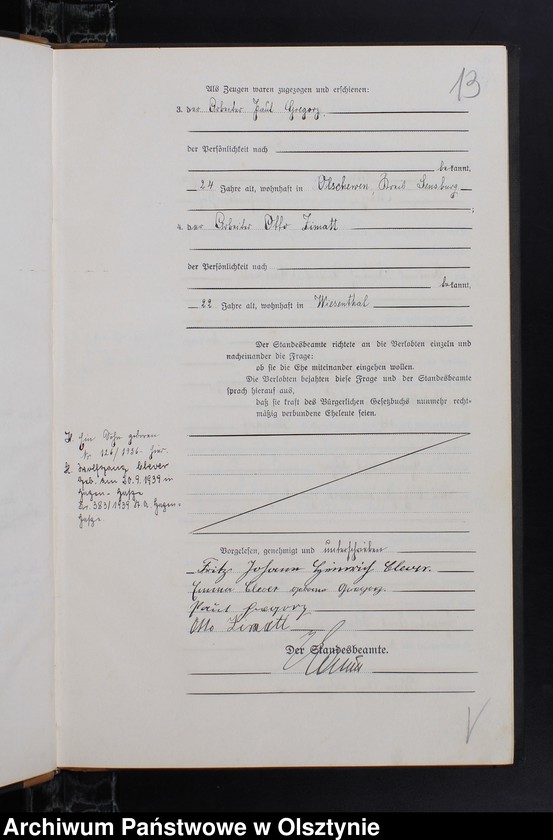 13
Als Zeugen waren zugezogen und erschienen:
3. der Arbeiter Paul Gregorz,
der Persönlichkeit nach
bekannt,
24 Jahre alt, wohnhaft in Olschewen, Kreis Sensburg
;
4. der Arbeiter Otto Zimatt
der Persönlichkeit nach
bekannt,
22 Jahre alt, wohnhaft in Wiesenthal
Der Standesbeamte richtete an die Verlobten einzeln und
nacheinander die Frage:
ob sie die Ehe miteinander eingehen wollen.
Die Verlobten bejahten diese Frage und der Standesbeamte
sprach hierauf aus,
daß sie kraft des Bürgerlichen Gesetzbuchs nunmehr recht-
mäßig verbundene Eheleute seien.
1. Ein Sohn geboren
Nr. 126/1936. hier.
2. Wolfgang Clever
geb. am 20.9.1939 in
Hagen-Haspe
Nr. 383/1939 St. A. Hagen-
Haspe.
Vorgelesen, genehmigt und unterschrieben
Fritz Johann Heinrich Clever.
Emma Clever geborene Gregorz.
Paul Gregorz
Otto Zimatt
Der Standesbeamte.